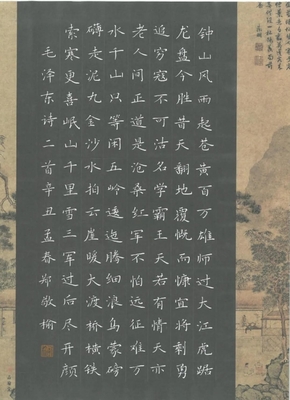 钟山风雨起苍黄百万雄师过大江虎踞
龙盘今胜昔天翻地覆慨而慷宜将剩勇
追穷寇不可沽名学霸王天若有情天亦
老人间正道是沧桑红军不怕远征难万
水千山只等闲五岭逶迤腾细浪乌蒙磅
礴走泥丸金沙水拍云崖暖大渡桥横铁
索寒更喜岷山千里雪三军过后尽开颜
毛泽东诗二首辛丑孟春郑敬榆